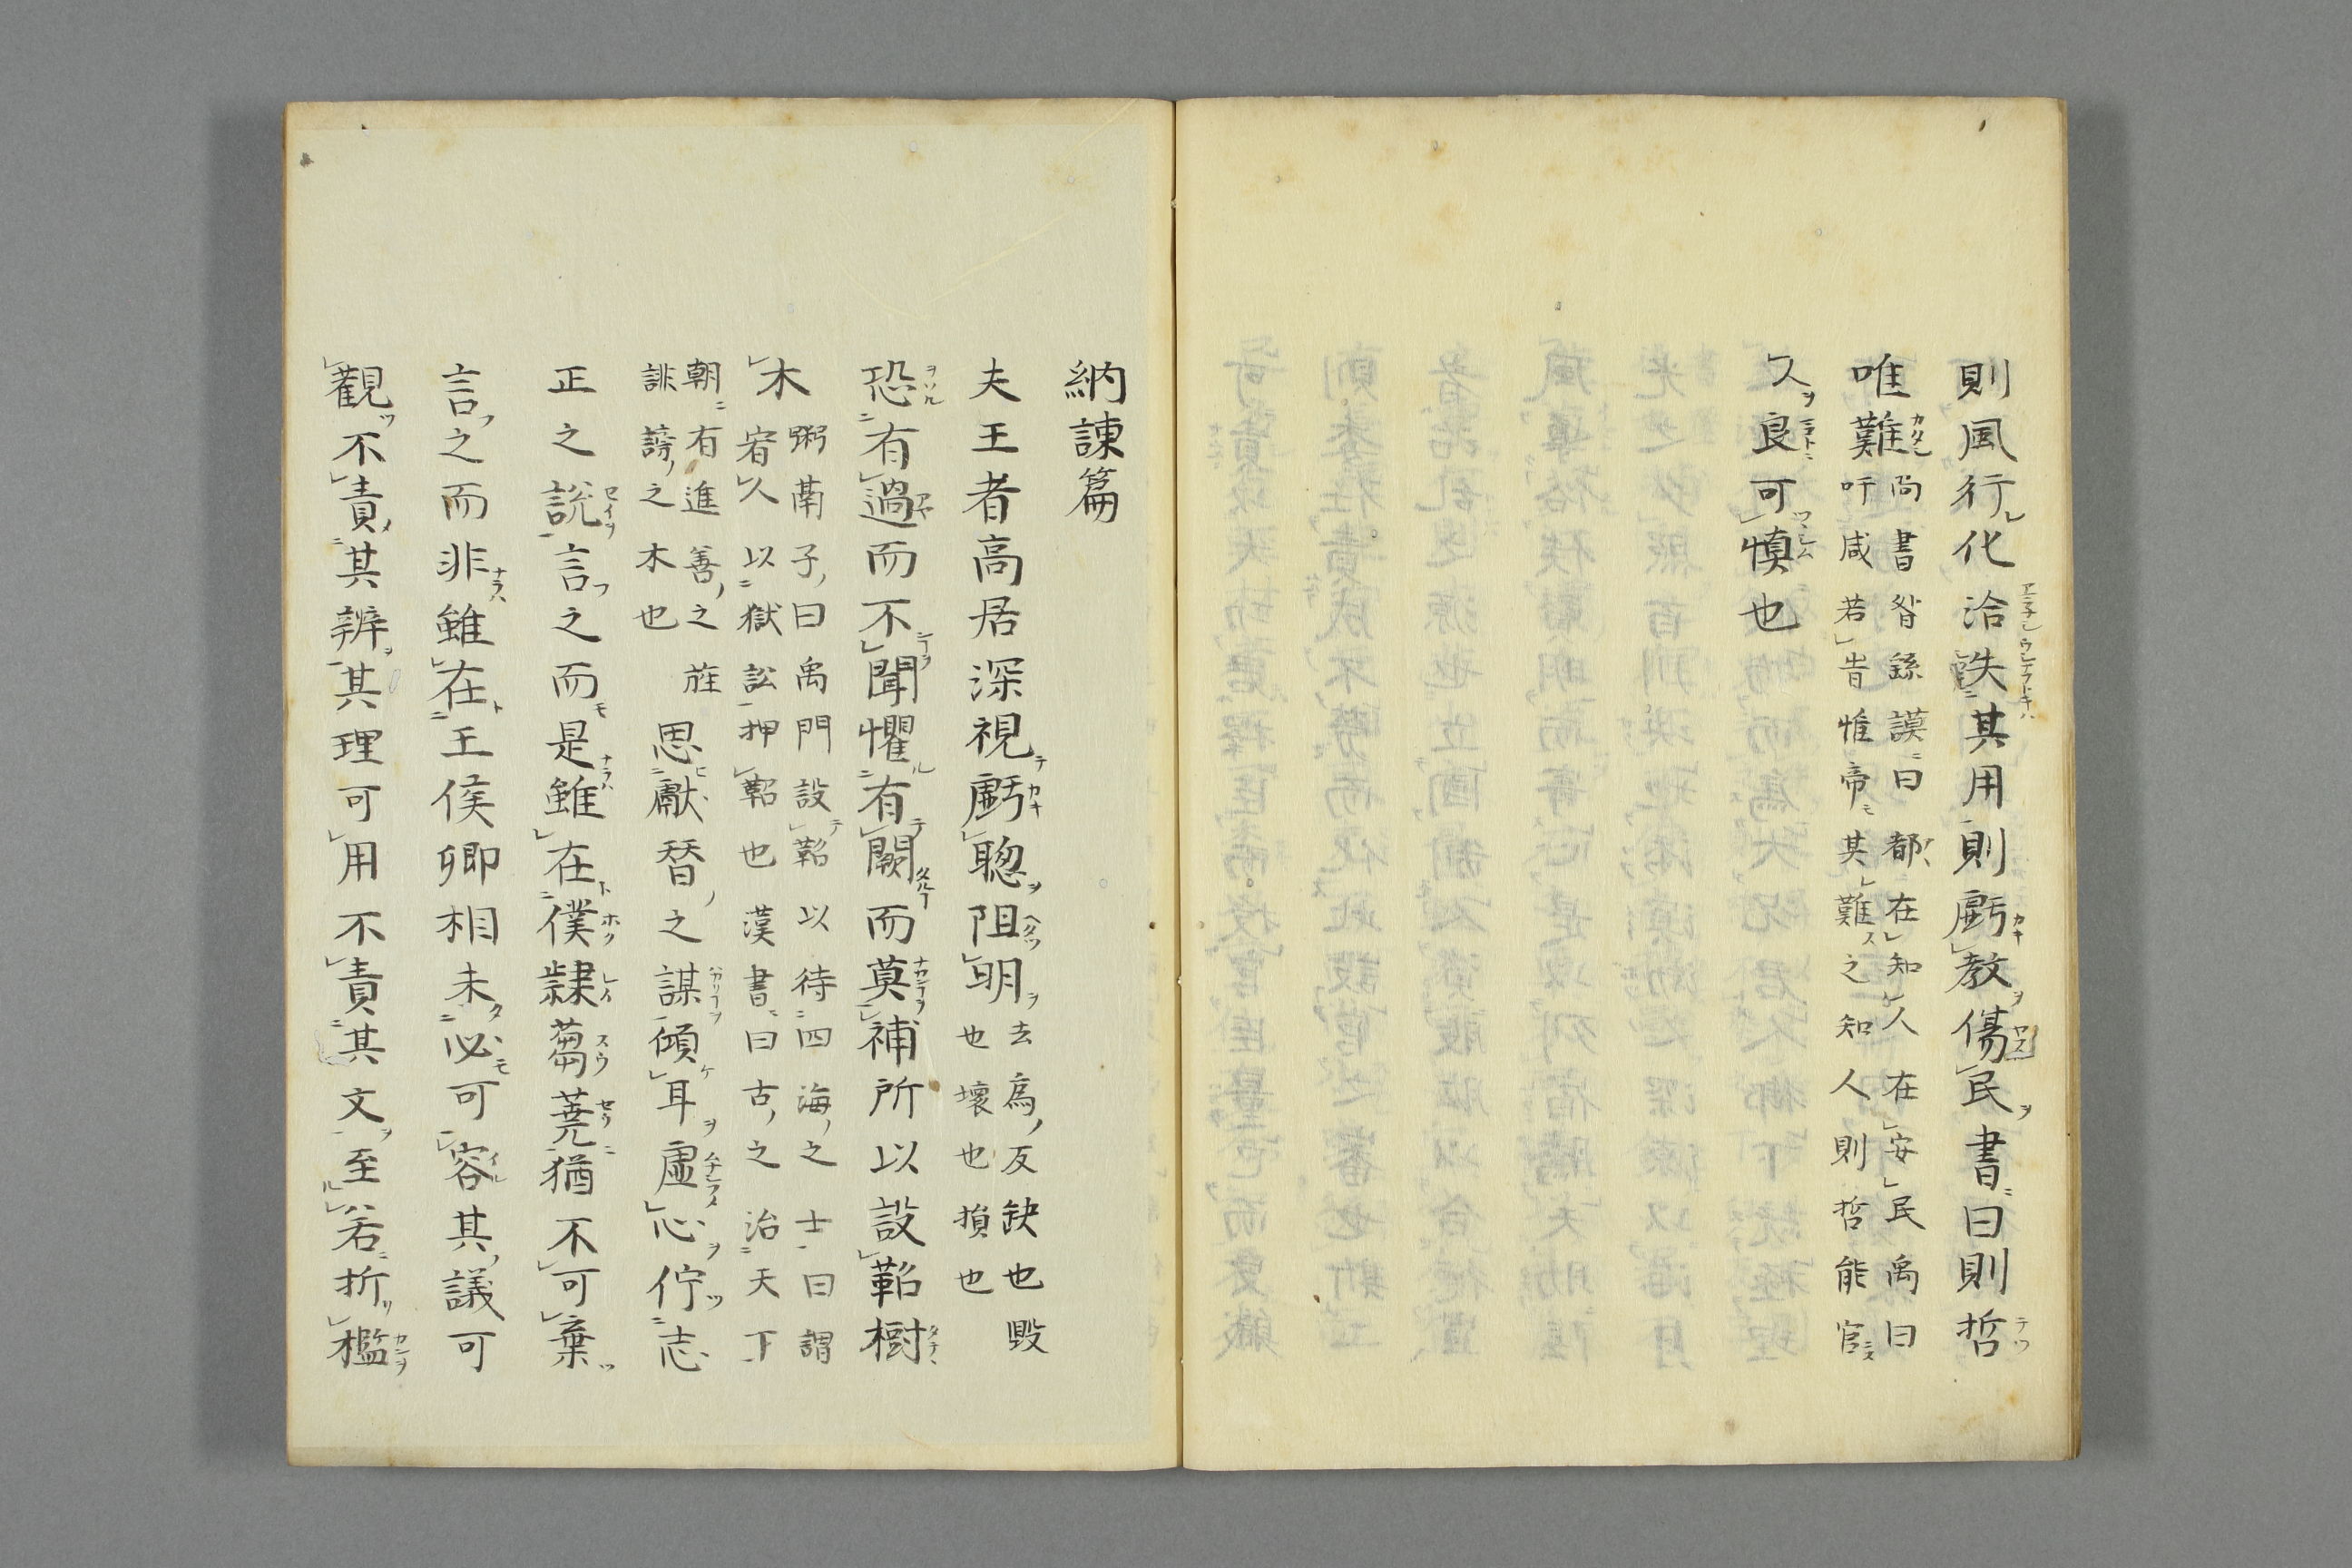 則風行化洽失其用則虧教傷民書曰則哲
唯難
尚書咎繇謨曰都在知人在安民禹曰
吁咸若旹惟帝其難之知人則哲能官
人良可慎也
納諫篇
夫王者高居深視虧聦阻明
去為反缺也毀
也壞也損也
恐有過而不聞懼有闕而莫補所以設鞀樹
木
粥子曰禹門設鞀以待四海之士曰謂
宥人以獄訟押鞀也漢書曰古之治天下
朝有進善之旌
誹謗之木也
思獻替之謀傾耳虛心佇志
正之說言之而是雖在僕隸蒭蕘猶不可棄
言之而非雖在王侯卿相未必可容其議可
觀不責其辨其理可用不責其文至若折檻